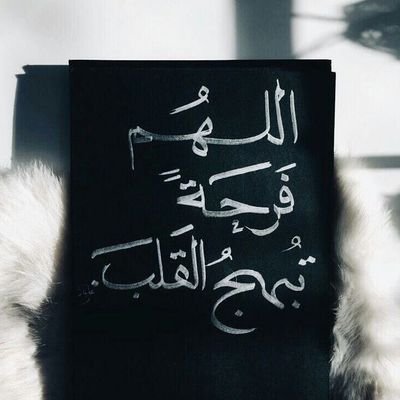 اللهُم
فَرحَةً
تُبهجُ القَلبَ.